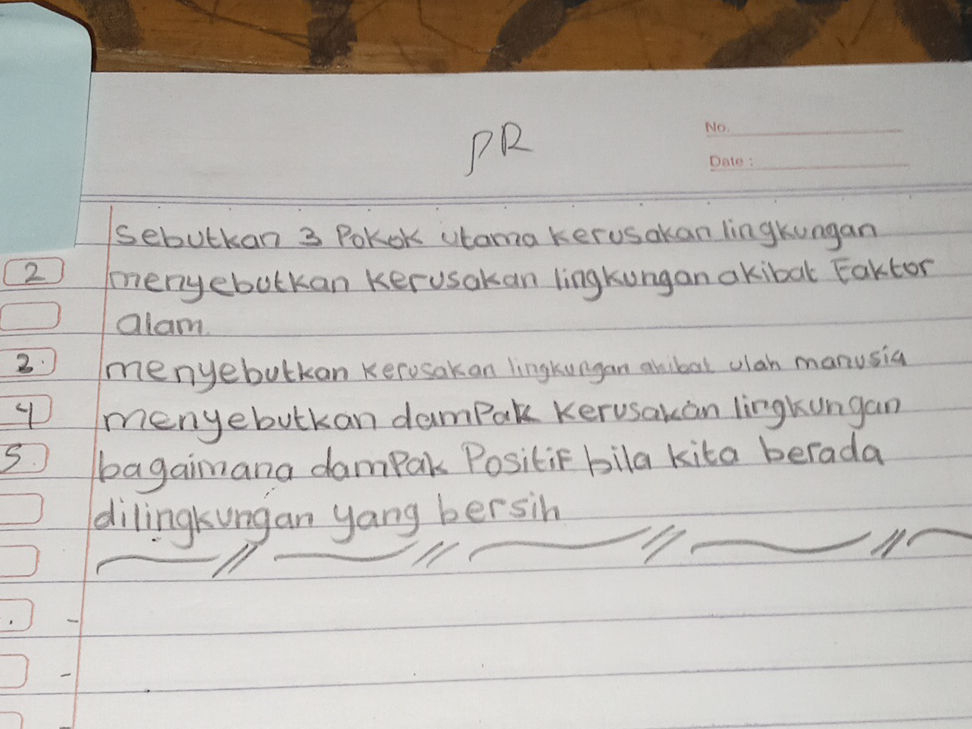 PR
No.
Date :
sebutkan 3 Pokok utama kerusakan lingkungan
2 menyebutkan kerusakan lingkungan akibat Faktor
alam.
3. menyebutkan kerusakan lingkungan akibat ulah manusia
4 menyebutkan damPak kerusakan lingkungan
5. bagaimana damPak PositiF bila kita berada
dilingkungan yang bersih